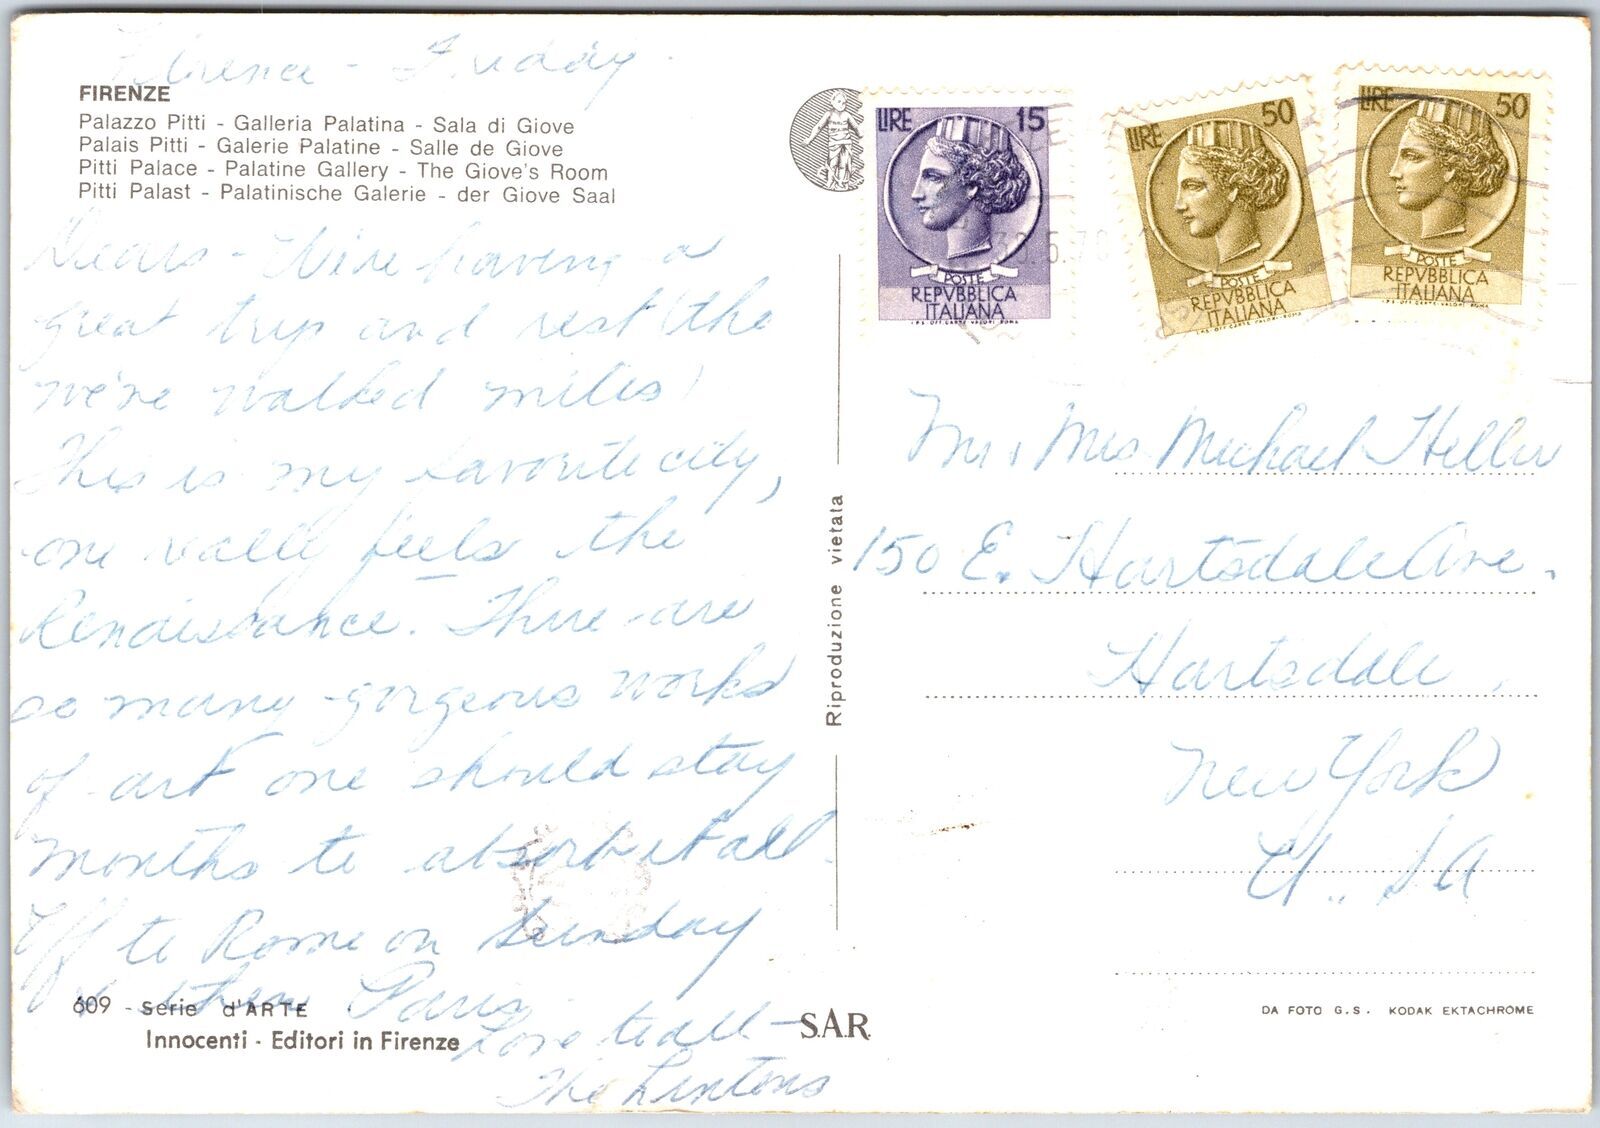 Florence - Friday.
FIRENZE
Palazzo Pitti - Galleria Palatina - Sala di Giove
Palais Pitti - Galerie Palatine - Salle de Giove
Pitti Palace - Palatine Gallery - The Giove's Room
Pitti Palast - Palatinische Galerie - der Giove Saal
Dears - We're having a
great trip and rest (tho
we've walked miles)
This is my favorite city,
one really feels the
Renaissance. There are
so many gorgeous works
of art one should stay
months to absorb it all.
Off to Rome on Sunday
& then Paris.
Love to all -
The Lintons
609 - Serie d'ARTE
Innocenti - Editori in Firenze
S.A.R.
Riproduzione vietata
LIRE 15
POSTE
REPVBBLICA
ITALIANA
I.P.S. OFF. CARTE VALORI - ROMA
LIRE 50
POSTE
REPVBBLICA
ITALIANA
I.P.S. OFF. CARTE VALORI - ROMA
LIRE 50
POSTE
REPVBBLICA
ITALIANA
I.P.S. OFF. CARTE VALORI - ROMA
30.5.70
Mr. & Mrs Michael Heller
150 E. Hartsdale Ave.
Hartsdale,
New York
U.. SA
DA FOTO G.S. KODAK EKTACHROME